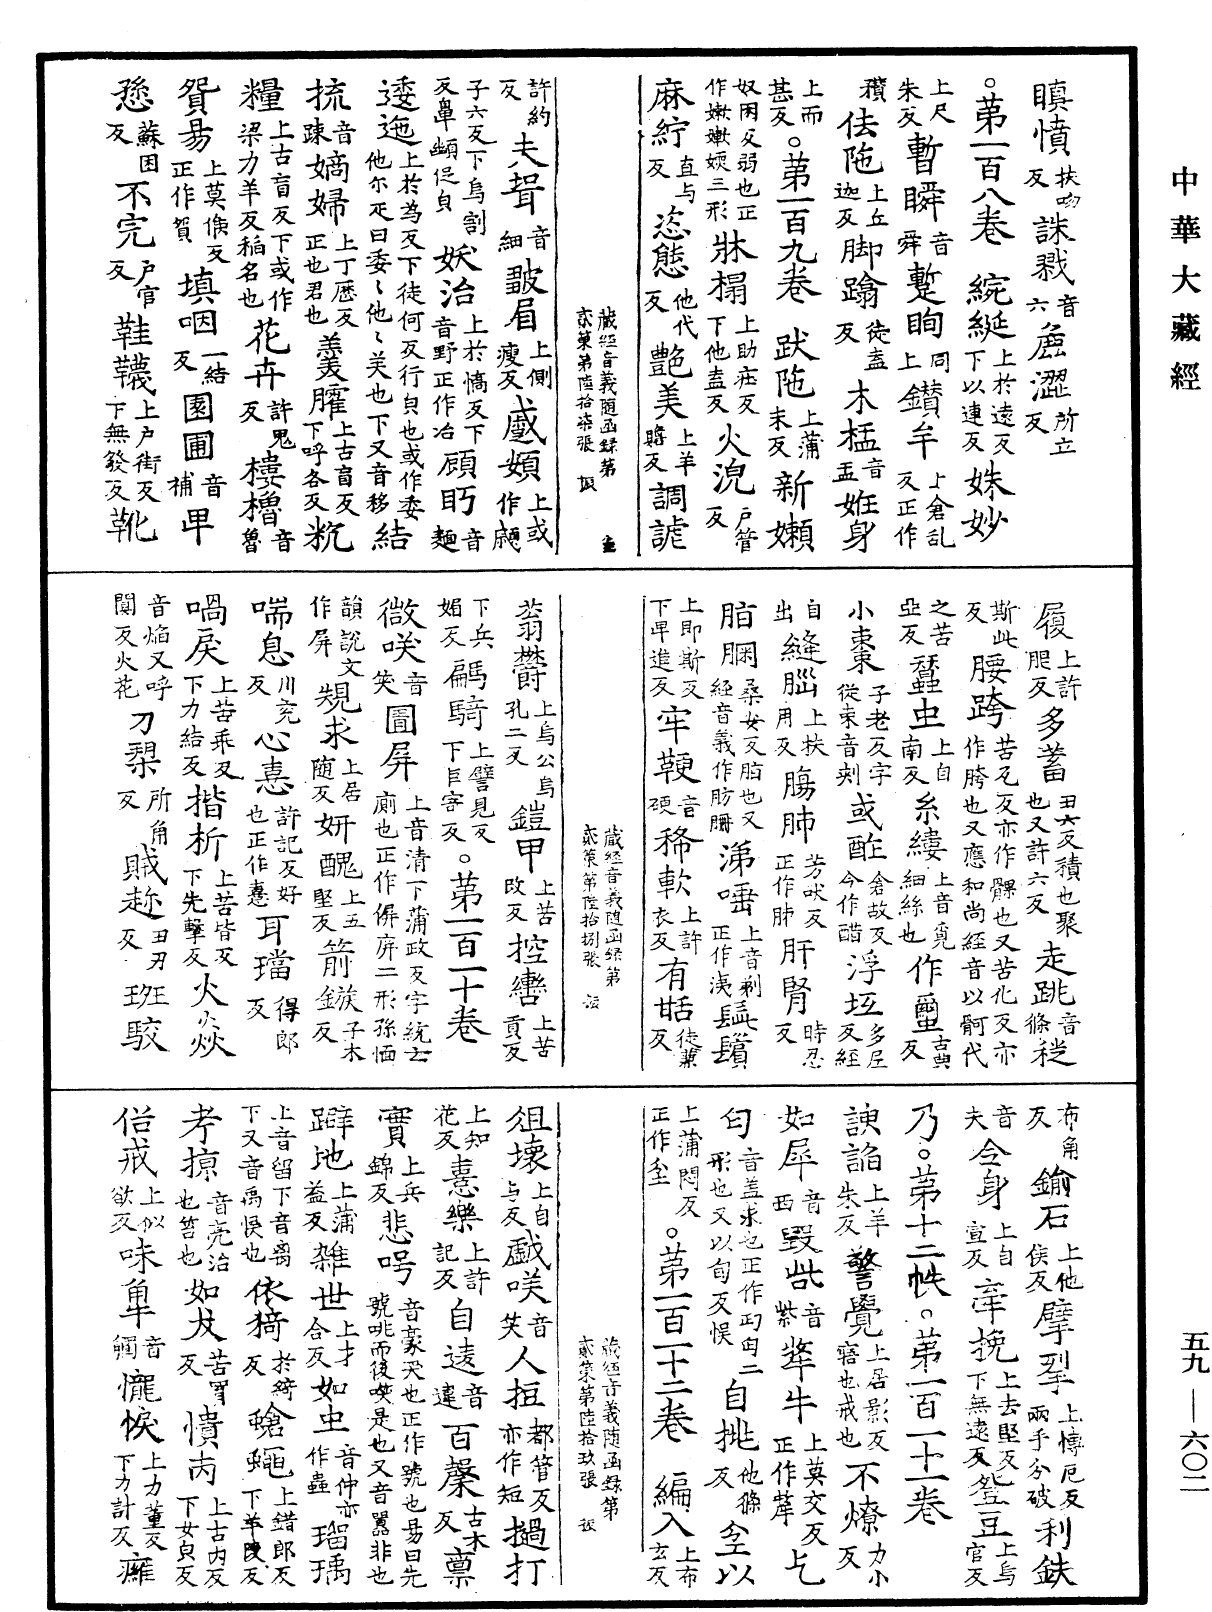 中華大藏經
瞋憤扶吻反誅戮音六麁澀所立反
。第一百八卷 綩綖上於遠反下以連反姝妙
上尺朱反暫瞬音舜蹔眴同上鑚牟上倉乱反正作
穳佉陁上丘迦反脚蹹徒盍反木榓音盂姙身
上而甚反。第一百九卷 跋陁上蒲末反新嫩
奴困反弱也正作嫩㜛㛐三形牀榻上助庄反下他盍反火涀戶管反
麻紵直与反恣態他代反艷美上羊贍反調謔
藏經音義隨函錄第貳策第陸拾柒張
許約反夫聟音細皺眉上側瘦反慼頞上或作顣
子六反下烏割反鼻䪼促皃妖治上於憍反下音野正作冶顧眄音麺
逶迤上於為反下徒何反行皃也或作委他尒反曰委〻他〻美也下又音移結
梳音踈嫡婦上丁歷反正也君也羹臛上古盲反下呼各反粇
糧上古盲反下或作梁力羊反稻名也花卉許鬼反樓櫓音魯
貿易上莫候反正作貿填咽一結反園圃音補甲
愻蘇困反不完戶官反鞋韈上戶街反下無發反靴
履上許肥反多蓄丑六反積也聚也又許六反走跳音條
斯此反腰跨苦瓦反亦作髁也又苦化反亦作胯也又應和尚經音以䯊代
之苦亞反蠶虫上自南反糸縷上音覓細絲也作璽古典反
小棗子老反字從朿音刾或酢倉故反今作醋浮垢多后反經
自出縫腦上扶用反腸肺芳吠反正作肺肝腎時忍反
脂䐃桑女反脂也又經音義作肪䐃涕唾上音剃正作洟髭鬚
上即斯反下卑進反牢鞕音硬稀軟上許衣反有甜徒兼反
藏經音義隨函錄第貳策第陸拾捌張
蓊欝上烏公烏孔二反鎧甲上苦改反控轡上苦貢反
下兵媚反騗騎上譬見反下巨寄反。第一百一十卷
微咲音笑圊屏上音清下蒲政反字統云廁也正作偋庰二形孫愐
韻說文作屏規求上居隨反妍醜上五堅反箭鏃子木反
喘息川兖反心憙許記反好也正作憙耳璫得郎反
喎戾上苦乖反下力結反揩析上苦皆反下先擊反火焱
音焰又呼闃反火花刀槊所角反賊趂丑刃反班駮
布角反鍮石上他侯反擘裂上博厄反兩手分破利鈇
音夫全身上自宣反牽挽上去堅反下無遠反豋豆上烏官反
乃。第十二帙。第一百一十一卷
諛謟上羊朱反警覺上居影反寤也戒也不燎力小反
如犀音西毀呰音紫犛牛上莫交反正作犛乞
匄音盖求也正作丐匃二形也又以匄反悮自挑他條反坌以
上蒲悶反正作坌。第一百一十二卷 編入上布玄反
藏經音義隨函錄第貳策第陸拾玖張
俎壞上自与反戱咲音笑人短都管反亦作短撾打
上知花反憙樂上許記反自違音違百槃古木反禀
實上兵錦反悲号音豪哭也正作號也易曰先號咷而後咲是也又音嚻非也
躃地上蒲益反雜世上才合反如虫音仲亦作蟲瑠璃
上音留下音离下又音禹悮也依猗於綺反蟾蠅上錯郎反下羊陵反
考掠音亮治也笞也如攱苦買反憒丙上古內反下女皃反
俗戒上似欲反味觕音觸儱悷上力董反下力計反癰
五九—六〇二